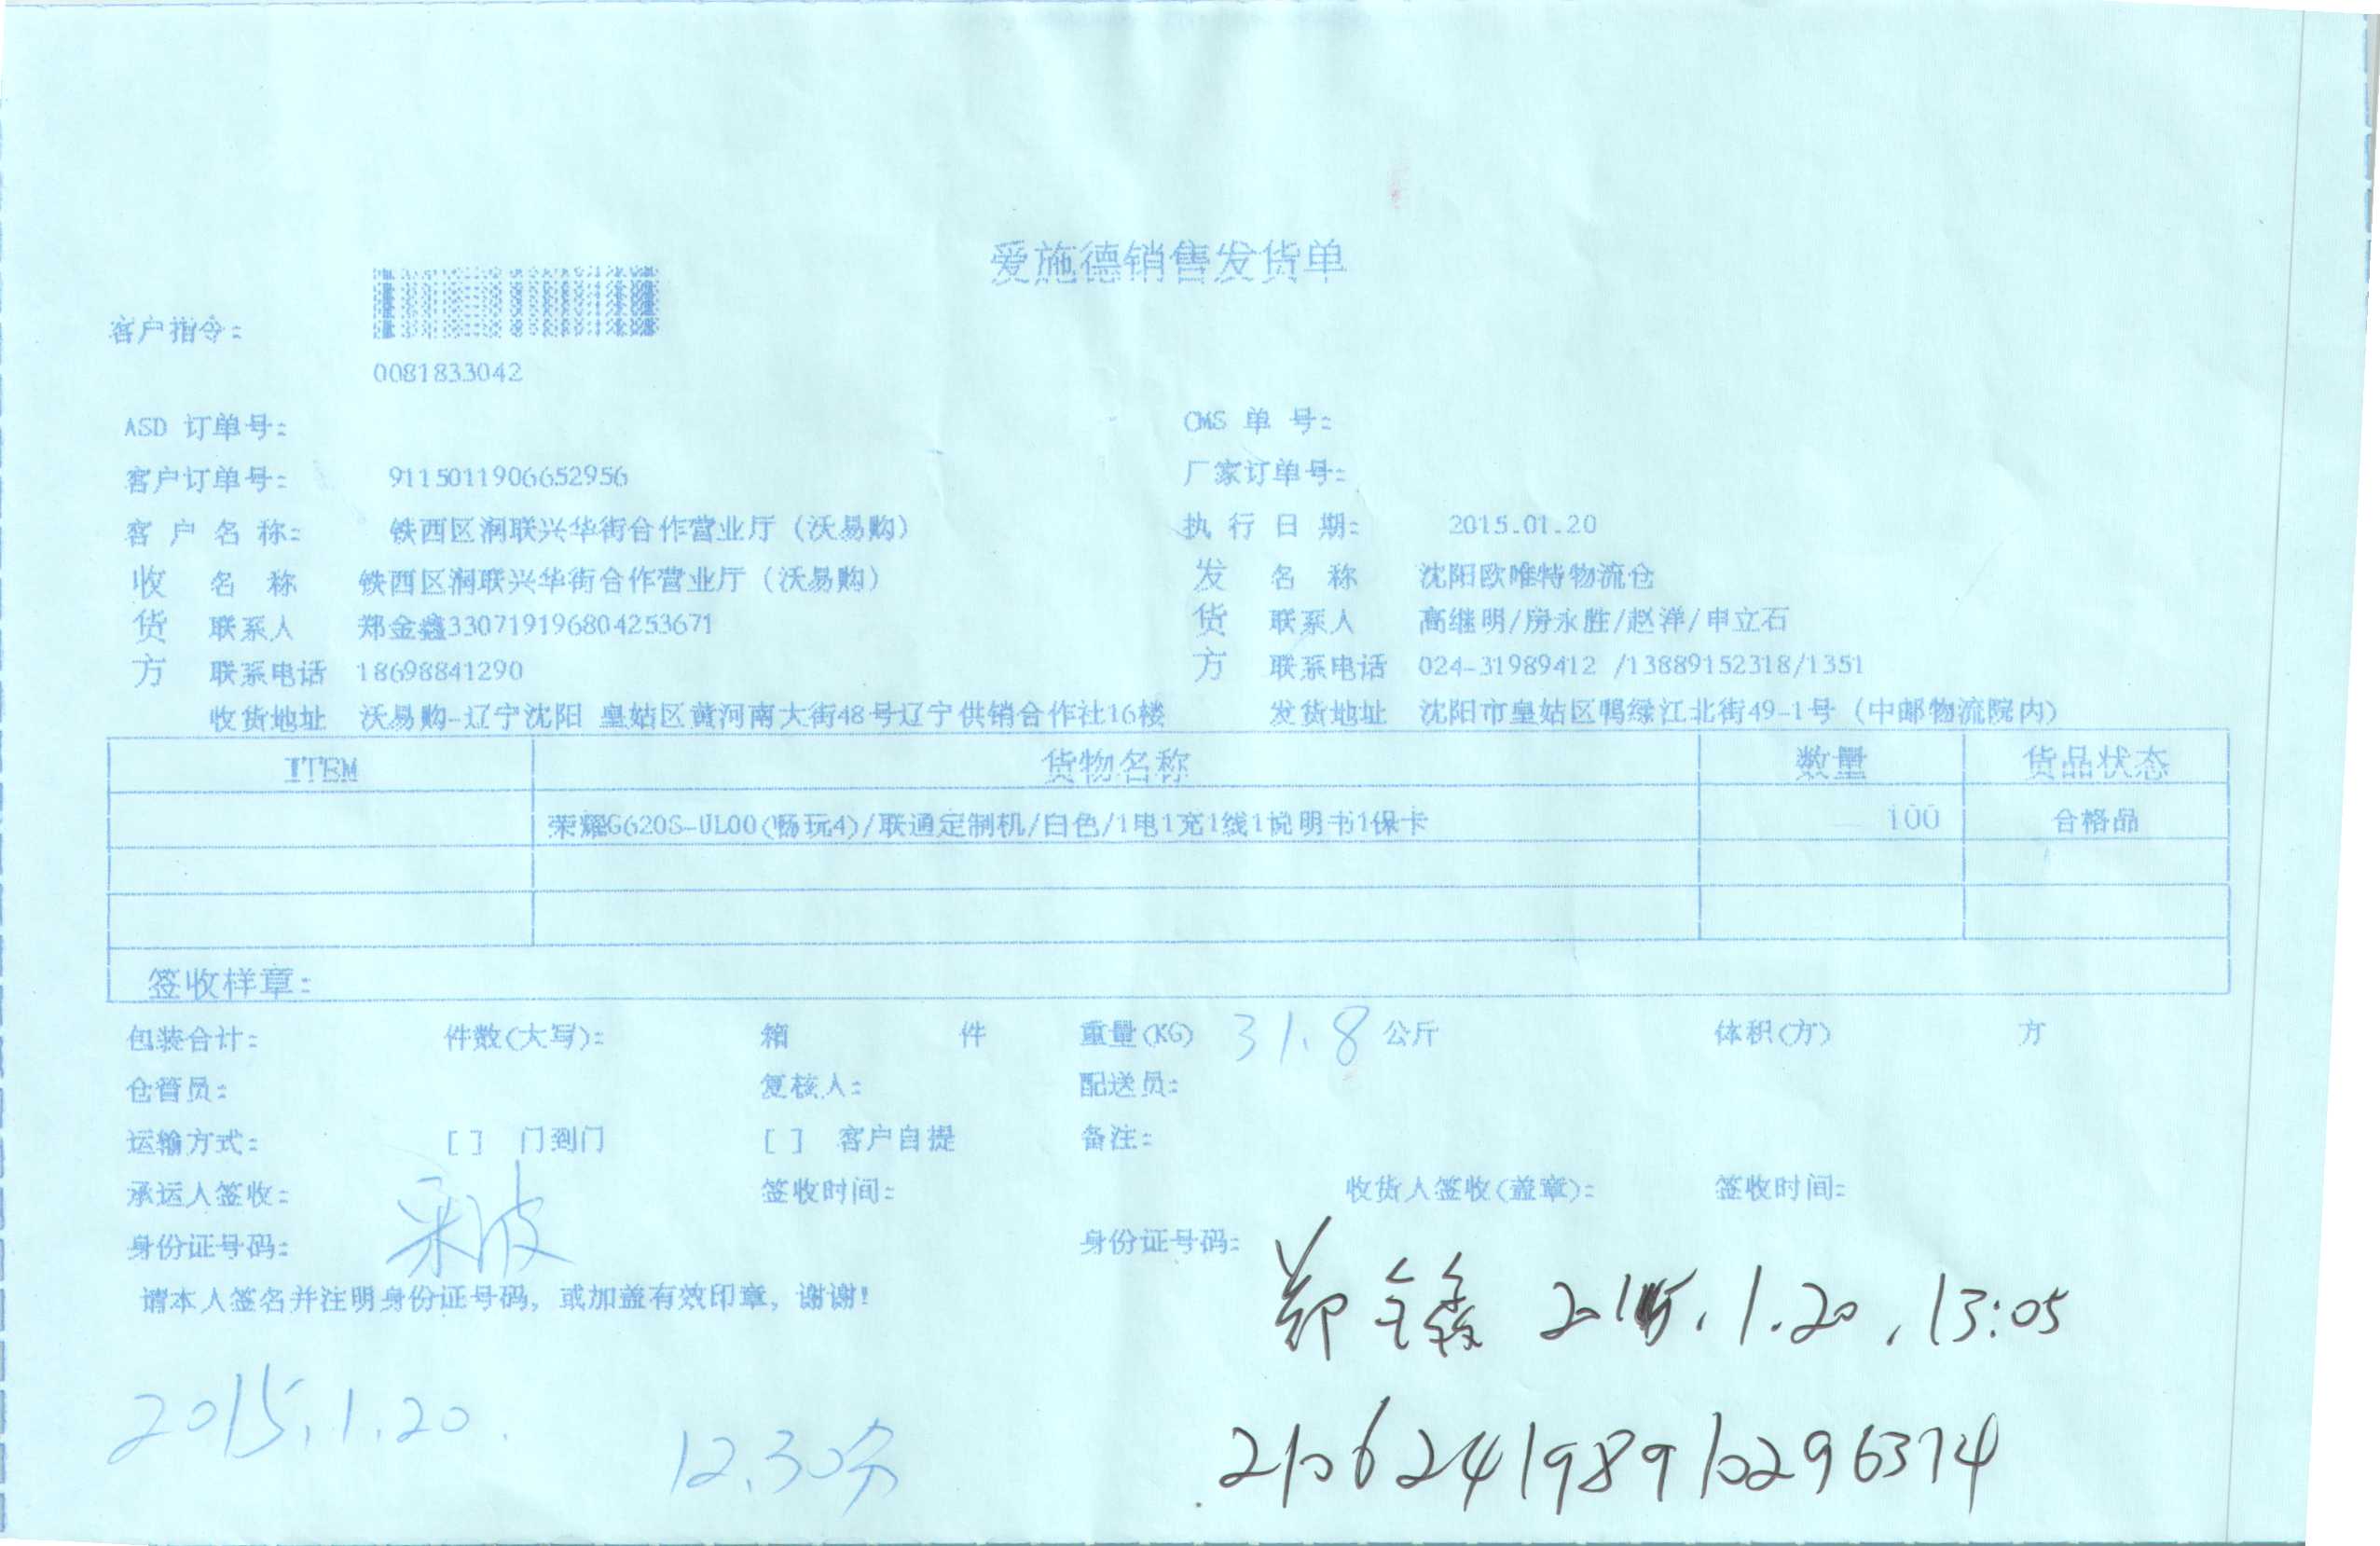 爱施德销售发货单
客户指令:
0081833042
ASD 订单号: CMS 单 号:
客户订单号: 9115011906652956 厂家订单号:
客 户 名 称: 铁西区润联兴华街合作营业厅（沃易购） 执 行 日 期: 2015.01.20
收 名 称 铁西区润联兴华街合作营业厅（沃易购） 发 名 称 沈阳欧唯特物流仓
货 联系人 郑金鑫330719196804253671 货 联系人 高继明/房永胜/赵洋/申立石
方 联系电话 18698841290 方 联系电话 024-31989412 /13889152318/1351
收货地址 沃易购-辽宁沈阳 皇姑区黄河南大街48号辽宁供销合作社16楼 发货地址 沈阳市皇姑区鸭绿江北街49-1号（中邮物流院内）
ITEM 货物名称 数量 货品状态
荣耀G620S-UL00(畅玩4)/联通定制机/白色/1电1充1线1说明书1保卡 100 合格品
签收样章:
包装合计: 件数(大写): 箱 件 重量(KG) 31.8 公斤 体积(方) 方
仓管员: 复核人: 配送员:
运输方式: [ ] 门到门 [ ] 客户自提 备注:
承运人签收: 签收时间: 收货人签收(盖章): 签收时间:
身份证号码: 身份证号码:
请本人签名并注明身份证号码, 或加盖有效印章, 谢谢!
郑金鑫 2015.1.20,13:05
2015.1.20. 12.30分
210624198910296374